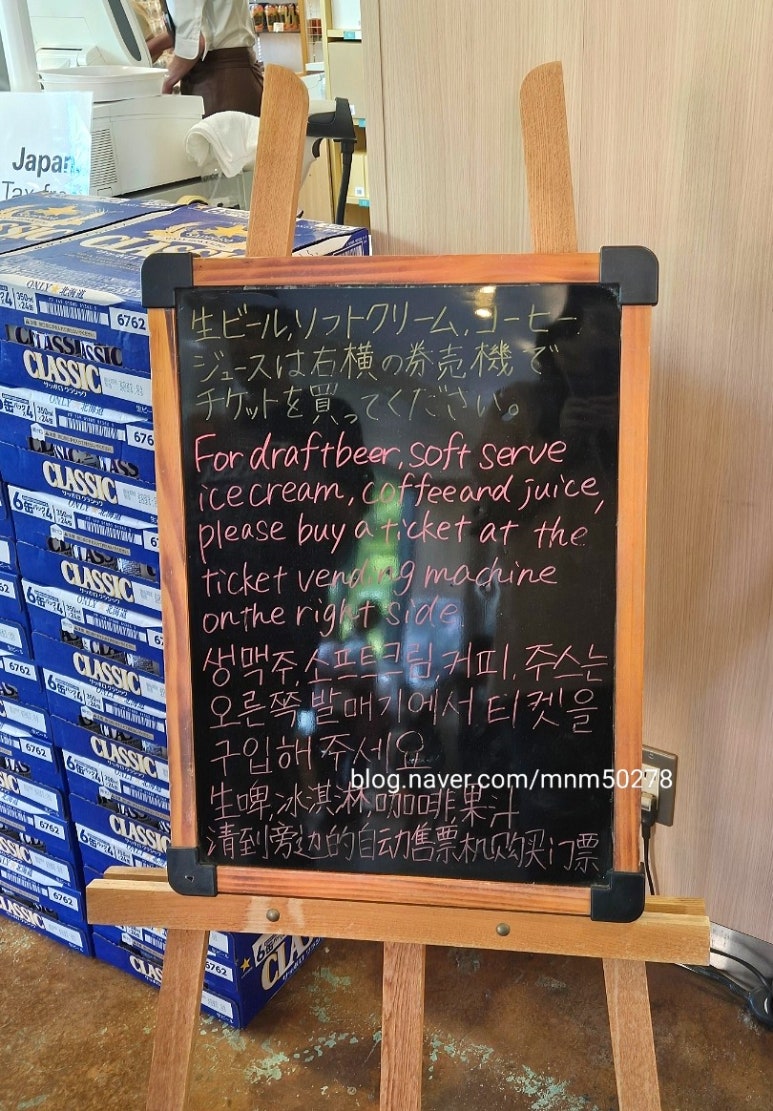 Japan
CLASSIC
ONLY★北海道
6762
CLASSIC
サッポロ クラシック
生ビール,ソフトクリーム,コーヒー
ジュースは右横の券売機で
チケットを買ってください。
For draft beer, soft serve
ice cream, coffee and juice,
please buy a ticket at the
ticket vending machine
on the right side
생맥주,소프트크림,커피,주스는
오른쪽 발매기에서 티켓을
구입해 주세요
blog.naver.com/mnm50278
生啤,冰淇淋,咖啡,果汁
清到旁边的自动售票机购买门票